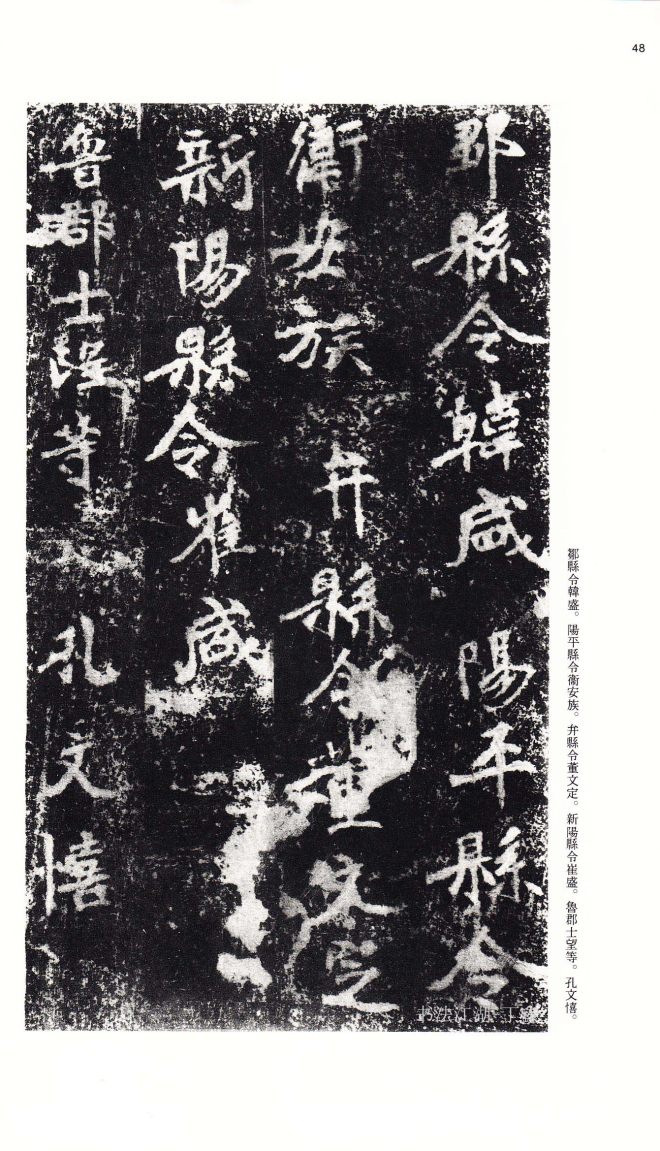 48
鄒縣令韓咸　陽平縣令
衛安族　弁縣令董文定
新陽縣令崔咸
魯郡士望等　孔文憘
鄒縣令韓盛。陽平縣令衞安族。弁縣令董文定。新陽縣令崔盛。魯郡士望等。孔文憘。
书法江湖